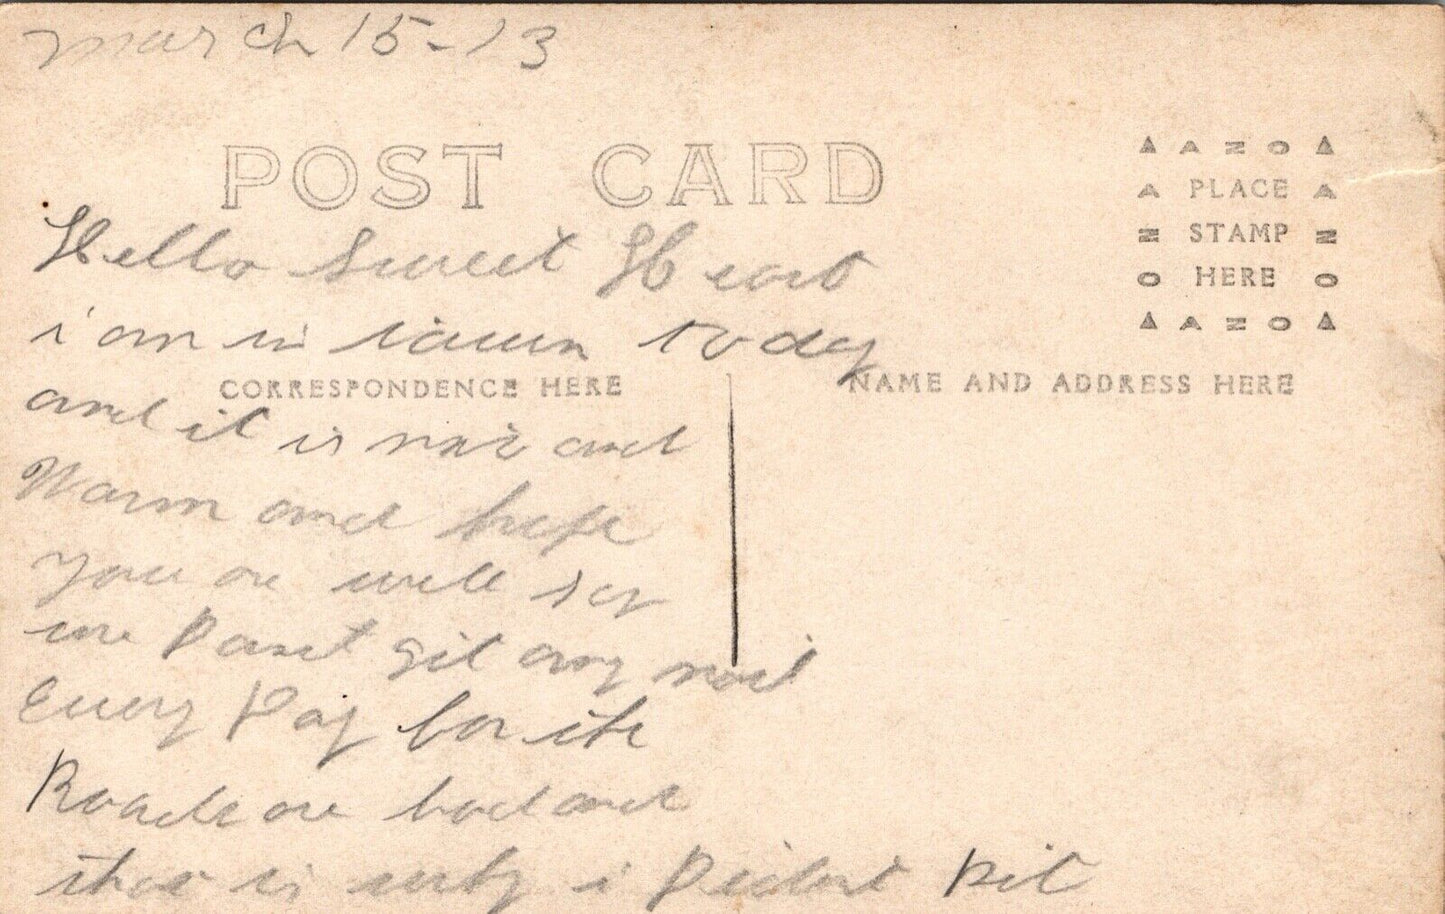 march 15-13
POST CARD
Hello Sweet Heart
i am in town today
and it is and
Warm and hope
you are well say
we Dont git any mail
Every Day for the
Roads are bad and
that is why i Dident Dit
AZO
PLACE
STAMP
HERE
AZO
CORRESPONDENCE HERE
NAME AND ADDRESS HERE